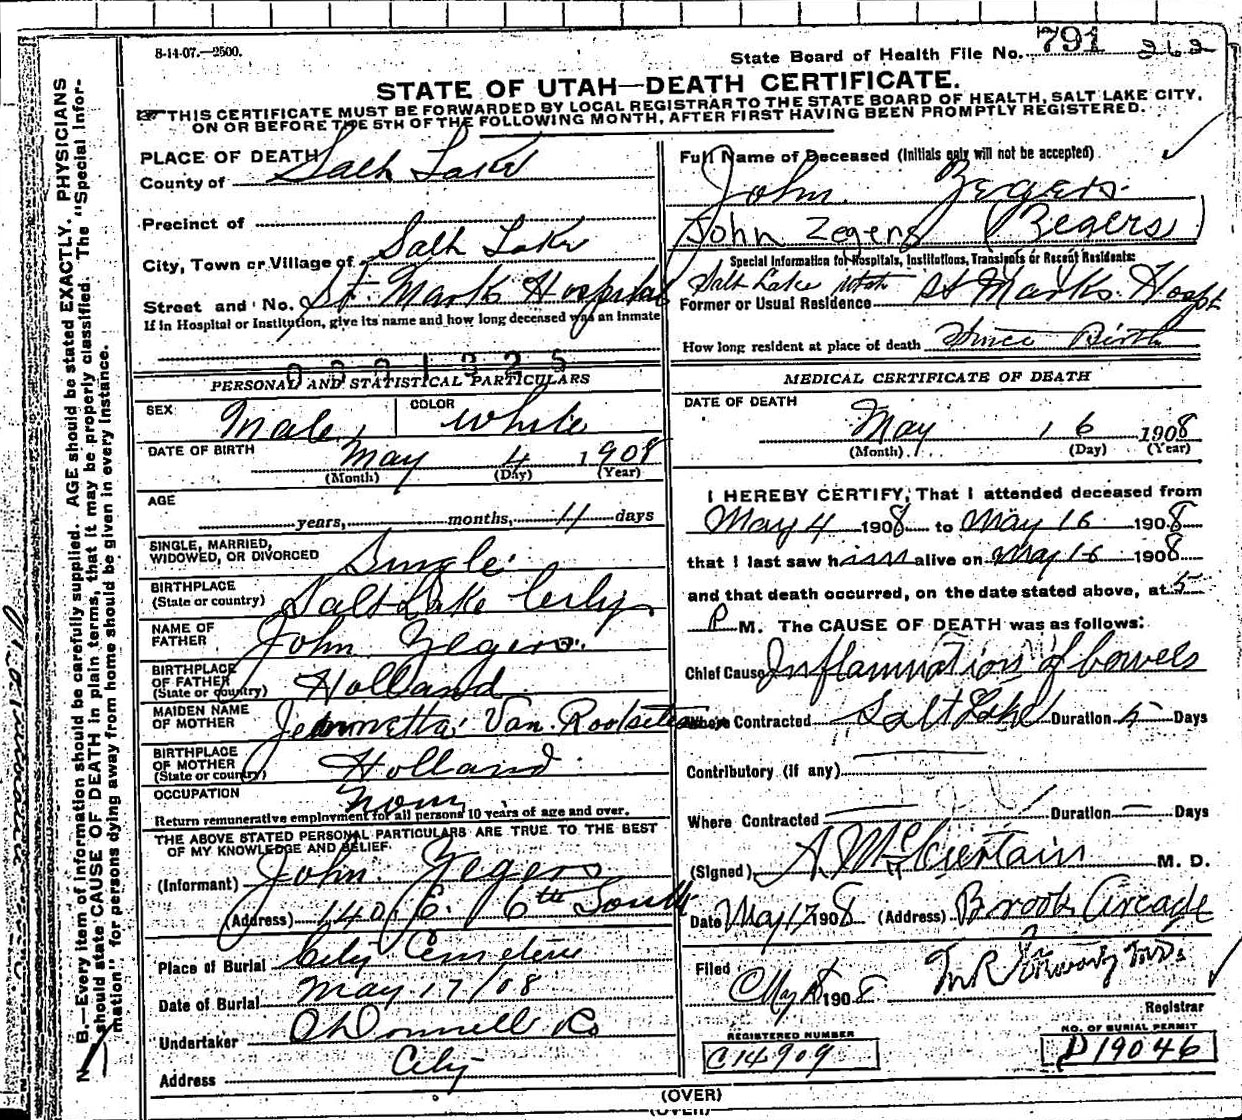 8-14-07.—2500.
State Board of Health File No. 791 262
STATE OF UTAH—DEATH CERTIFICATE.
THIS CERTIFICATE MUST BE FORWARDED BY LOCAL REGISTRAR TO THE STATE BOARD OF HEALTH, SALT LAKE CITY,
ON OR BEFORE THE 5TH OF THE FOLLOWING MONTH, AFTER FIRST HAVING BEEN PROMPTLY REGISTERED.
N. B.—Every item of information should be carefully supplied. AGE should be stated EXACTLY. PHYSICIANS
should state CAUSE OF DEATH in plain terms, that it may be properly classified. The "Special Infor-
mation" for persons dying away from home should be given in every instance.
PLACE OF DEATH
County of Salt Lake
Precinct of
City, Town or Village of Salt Lake
Street and No. St. Marks Hospital
If in Hospital or Institution, give its name and how long deceased was an inmate
0001325
PERSONAL AND STATISTICAL PARTICULARS
SEX Male COLOR White
DATE OF BIRTH May 4 1908
(Month) (Day) (Year)
AGE
years, months, 11 days
SINGLE, MARRIED,
WIDOWED, OR DIVORCED Single
BIRTHPLACE
(State or country) Salt Lake City
NAME OF
FATHER John Zegers
BIRTHPLACE
OF FATHER
(State or country) Holland
MAIDEN NAME
OF MOTHER Jeannetta Van
BIRTHPLACE
OF MOTHER
(State or country) Holland
OCCUPATION None
Return remunerative employment for all persons 10 years of age and over.
THE ABOVE STATED PERSONAL PARTICULARS ARE TRUE TO THE BEST
OF MY KNOWLEDGE AND BELIEF.
(Informant) John Zegers
(Address) 140 E. 6th South
Place of Burial City Cemetery
Date of Burial May 17/08
Undertaker O'Donnell Co
Address City
Full Name of Deceased (Initials only will not be accepted)
John Zegers
John Zegers (Zegers)
Special Information for Hospitals, Institutions, Transients or Recent Residents:
Salt Lake Utah St Marks Hospt
Former or Usual Residence
How long resident at place of death Since Birth
MEDICAL CERTIFICATE OF DEATH
DATE OF DEATH
May 16 1908
(Month) (Day) (Year)
I HEREBY CERTIFY, That I attended deceased from
May 4 1908 to May 16 1908
that I last saw him alive on May 16 1908
and that death occurred, on the date stated above, at 5
P M. The CAUSE OF DEATH was as follows:
Chief Cause Inflammation of bowels
Where Contracted Salt Lake Duration 5 Days
Contributory (if any)
Where Contracted Duration — Days
(Signed) M. D.
Date May 17 1908 (Address) Brooks Arcade
Filed
May 1908
Registrar
REGISTERED NUMBER
C14909
NO. OF BURIAL PERMIT
D19046
(OVER)
(OVER)